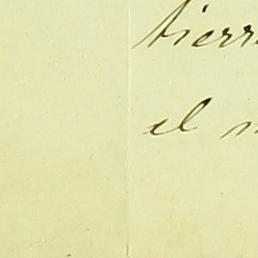 tierr
el